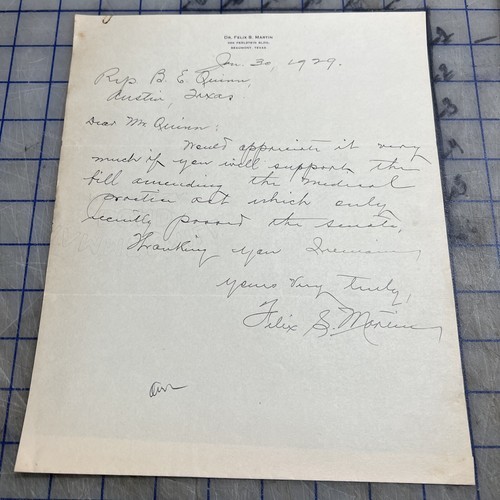 Dr. Felix S. Martin
Perlstein Bldg.
Beaumont, Texas
Jan. 30, 1929.
Rep B. E. Quinn,
Austin, Texas
Dear Mr Quinn:
Would appreciate it very
much if you will support the
bill amending the Medical
practice act which only
recently passed the senate,
Thanking you I remain,
yours very truly,
Felix S. Martin